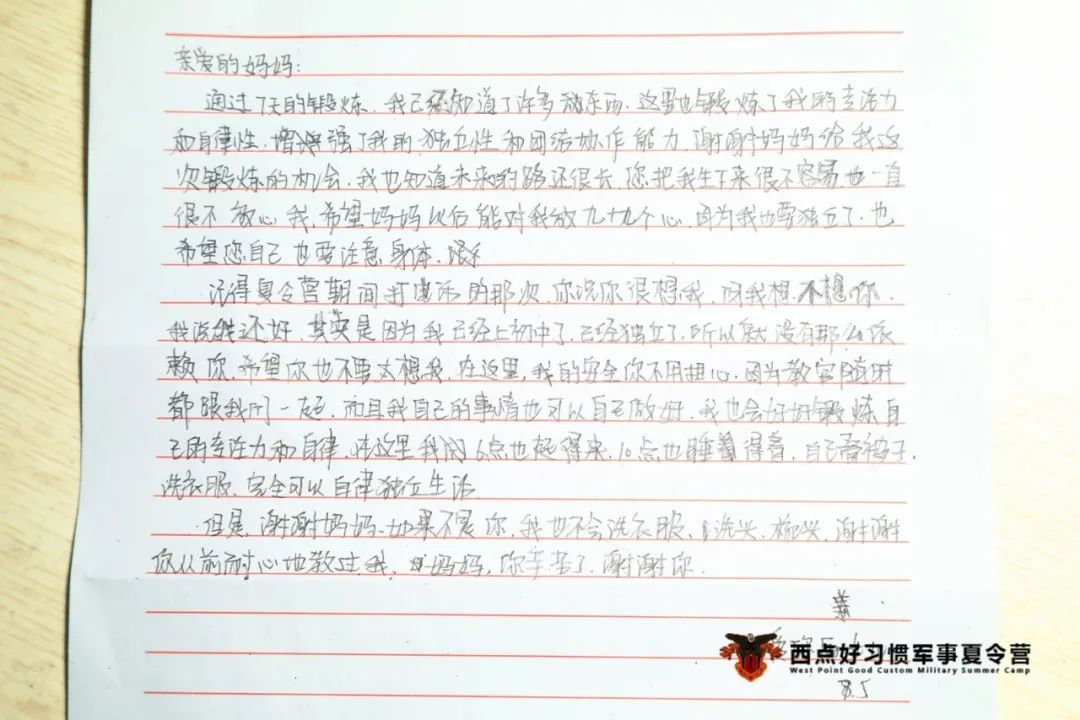 亲爱的妈妈:
通过7天的锻炼,我已经知道了许多新东西,这里也锻炼了我的专注力
和自律性,增强了我的独立性和团结协作能力,谢谢妈妈给我这
次锻炼的机会,我也知道未来的路还很长,您把我生下来很不容易,也一直
很不放心我,希望妈妈以后能对我放九十九个心,因为我也要独立了,也
希望您自己也要注意身体,
记得夏令营期间打电话的那次,你说你很想我,问我想不想你,
我说我还好,其实是因为我已经上初中了,已经独立了,所以就没有那么依
赖你,希望你也不要太想我,在这里,我的安全你不用担心,因为教官随时
都跟我们一起,而且我自己的事情也可以自己做好,我也会好好锻炼自
己的专注力和自律,在这里我们6点也起得来,10点也睡得着,自己叠被子,
洗衣服,完全可以自律独立生活,
但是,谢谢妈妈,如果不是你,我也不会洗衣服,洗头,梳头,谢谢
你以前耐心地教过我,妈妈,你辛苦了,谢谢你.
西点好习惯军事夏令营
West Point Good Custom Military Summer Camp
8.5